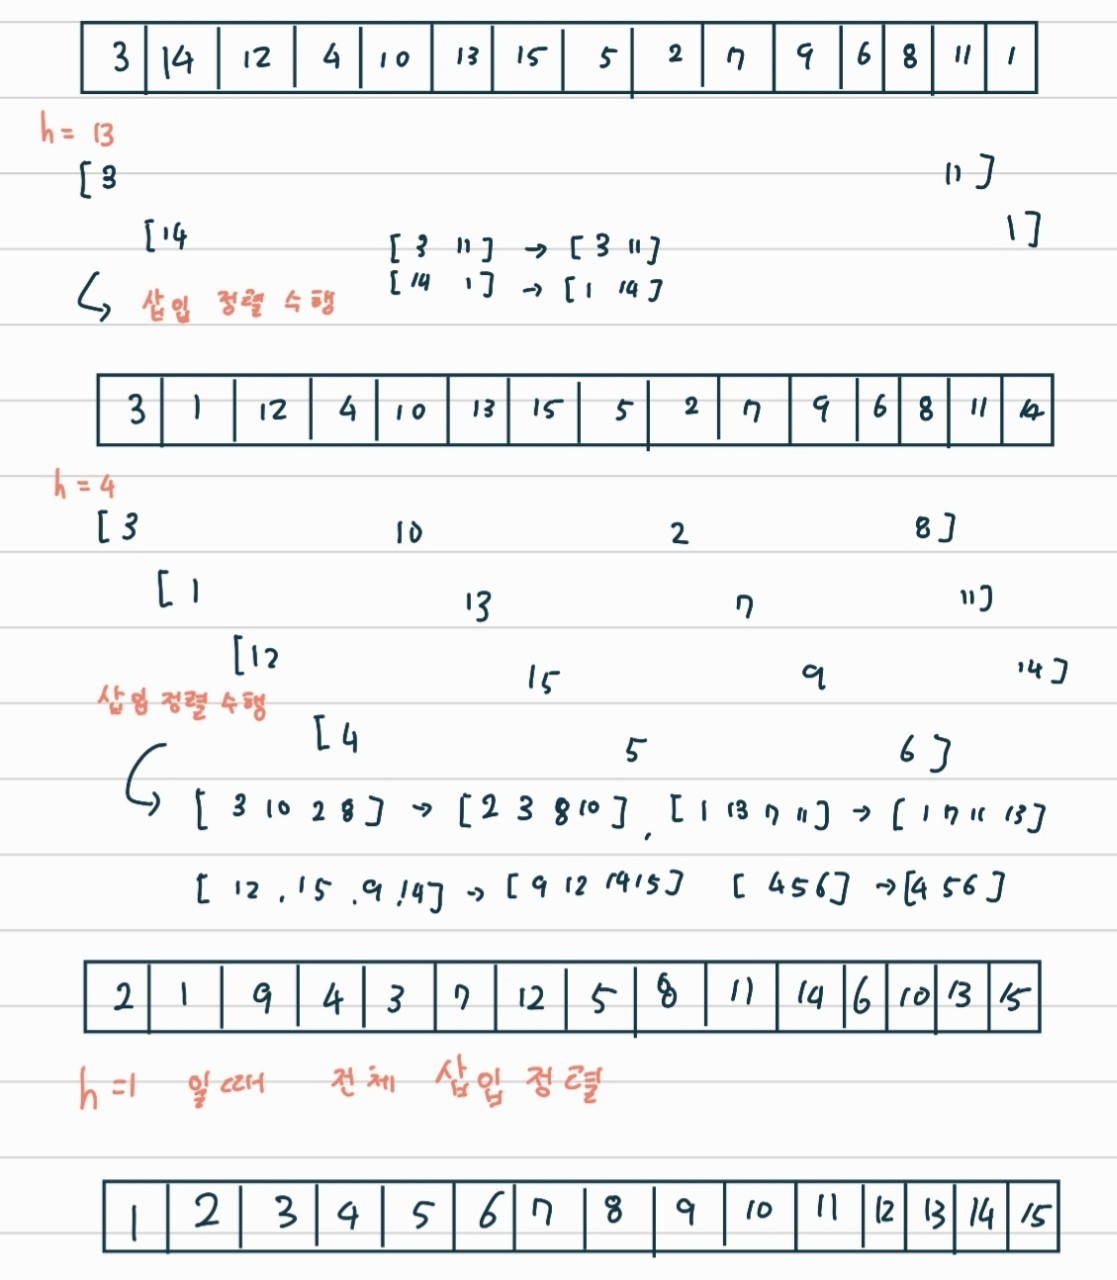 3 14 12 4 10 13 15 5 2 7 9 6 8 11 1
h = 13
[ 3 11 ]
[ 14 1 ]
[ 3 11 ] → [ 3 11 ]
[ 14 1 ] → [ 1 14 ]
삽입 정렬 수행
3 1 12 4 10 13 15 5 2 7 9 6 8 11 14
h = 4
[ 3 10 2 8 ]
[ 1 13 7 11 ]
[ 12 15 9 14 ]
삽입 정렬 수행
[ 4 5 6 ]
[ 3 10 2 8 ] → [ 2 3 8 10 ] , [ 1 13 7 11 ] → [ 1 7 11 13 ]
[ 12 , 15 , 9 , 14 ] → [ 9 12 14 15 ] [ 4 5 6 ] → [ 4 5 6 ]
2 1 9 4 3 7 12 5 8 11 14 6 10 13 15
h = 1 일때 전체 삽입 정렬
1 2 3 4 5 6 7 8 9 10 11 12 13 14 15